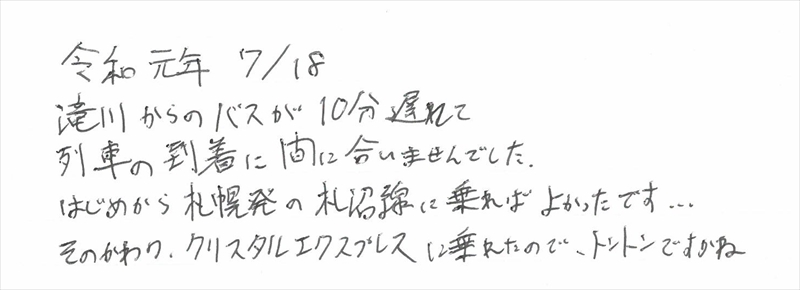 令和元年 7/18
滝川からのバスが10分遅れて
列車の到着に間に合いませんでした.
はじめから札幌発の札沼線に乗ればよかったです...
そのかわり、クリスタルエクスプレスに乗れたので、トントンですかね